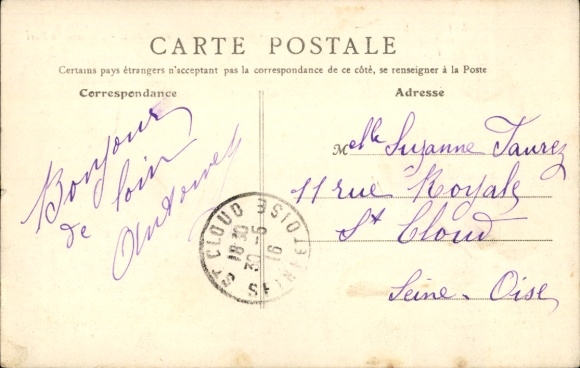 CARTE POSTALE
Certains pays étrangers n'acceptant pas la correspondance de ce côté, se renseigner à la Poste
Correspondance
Adresse
Bonjour
de loin
Melle Suzanne Taurez
11 rue Royale
St Cloud
Seine-Oise
ST CLOUD
18 30
30 - 5
16
SEINE ET OISE